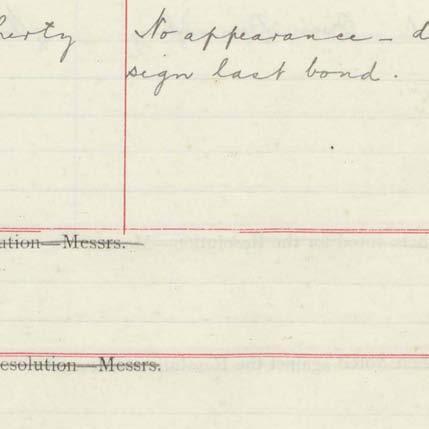 No appearance – d
sign last bond.
ution—Messrs.
esolution—Messrs.